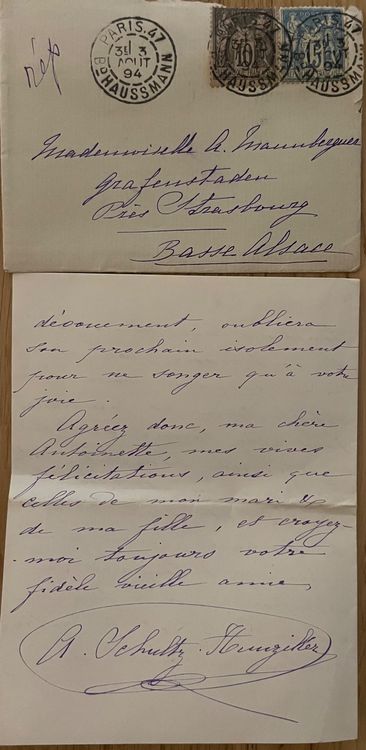 rép
PARIS.47
3E 3
AOUT
94
BD HAUSSMANN
10
15
94
HAUSSMANN
Mademoiselle A.
Grafenstaden
Près Strasbourg
Basse Alsace
dévouement, oubliera
son prochain isolement
pour ne songer qu'à votre
joie.
Agréez donc, ma chère
Antoinette, mes vives
félicitations, ainsi que
celles de mon mari &
de ma fille, et croyez-
moi toujours votre
fidèle vieille amie,
A. Schultz-Hunziker